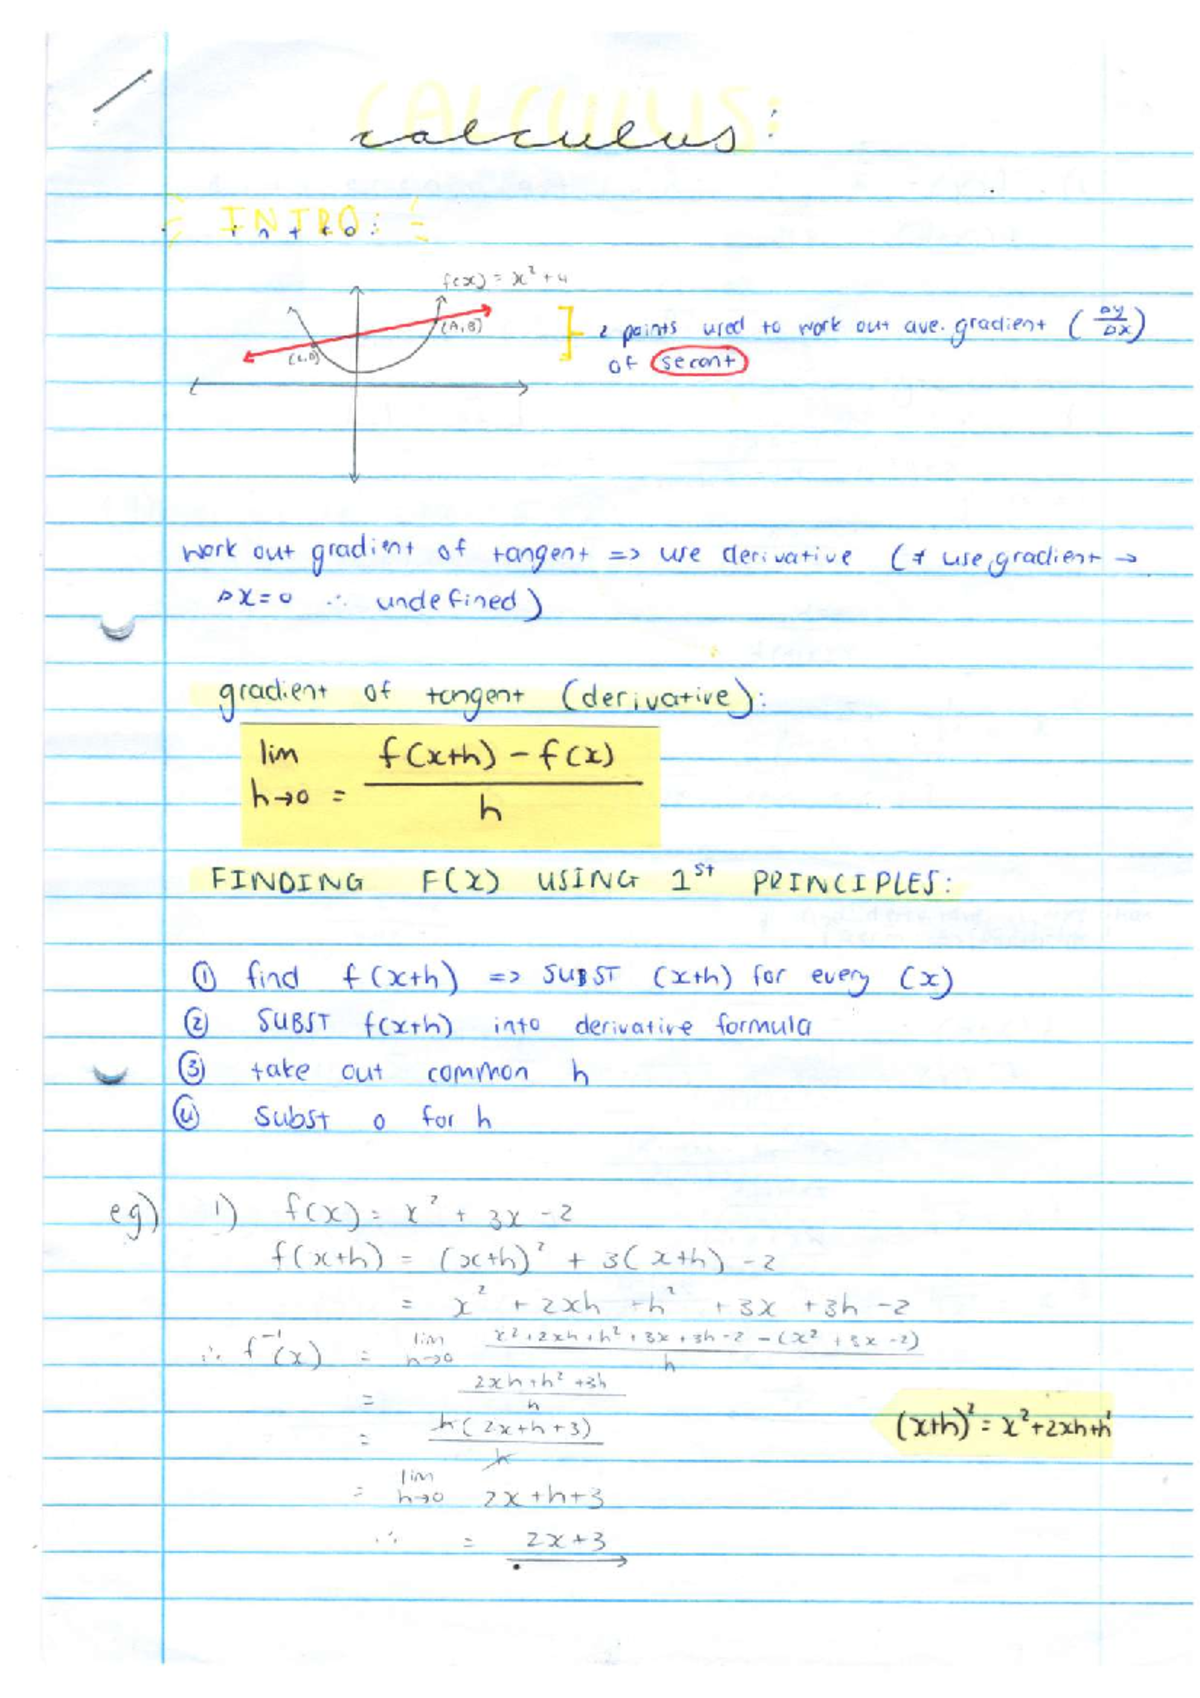 calculus:
INTRO:
f(x) = x² + 4
(A,B)
2 points used to work out ave. gradient (Δy/Δx)
of secant
work out gradient of tangent => use derivative (≠ use gradient →
Δx=0 ∴ undefined)
gradient of tangent (derivative):
lim f(x+h) - f(x)
h→0 = h
FINDING F(x) USING 1st PRINCIPLES:
① find f(x+h) => SUBST (x+h) for every (x)
② SUBST f(x+h) into derivative formula
③ take out common h
④ Subst 0 for h
eg) 1) f(x) = x² + 3x - 2
f(x+h) = (x+h)² + 3(x+h) - 2
= x² + 2xh + h² + 3x + 3h - 2
∴ f⁻¹(x) = lim h→0 x²+2xh+h²+3x+3h-2-(x²+3x-2) / h
= 2xh+h²+3h / h
= h(2x+h+3) / h
(x+h)² = x²+2xh+h²
= lim h→0 2x+h+3
∴ = 2x+3